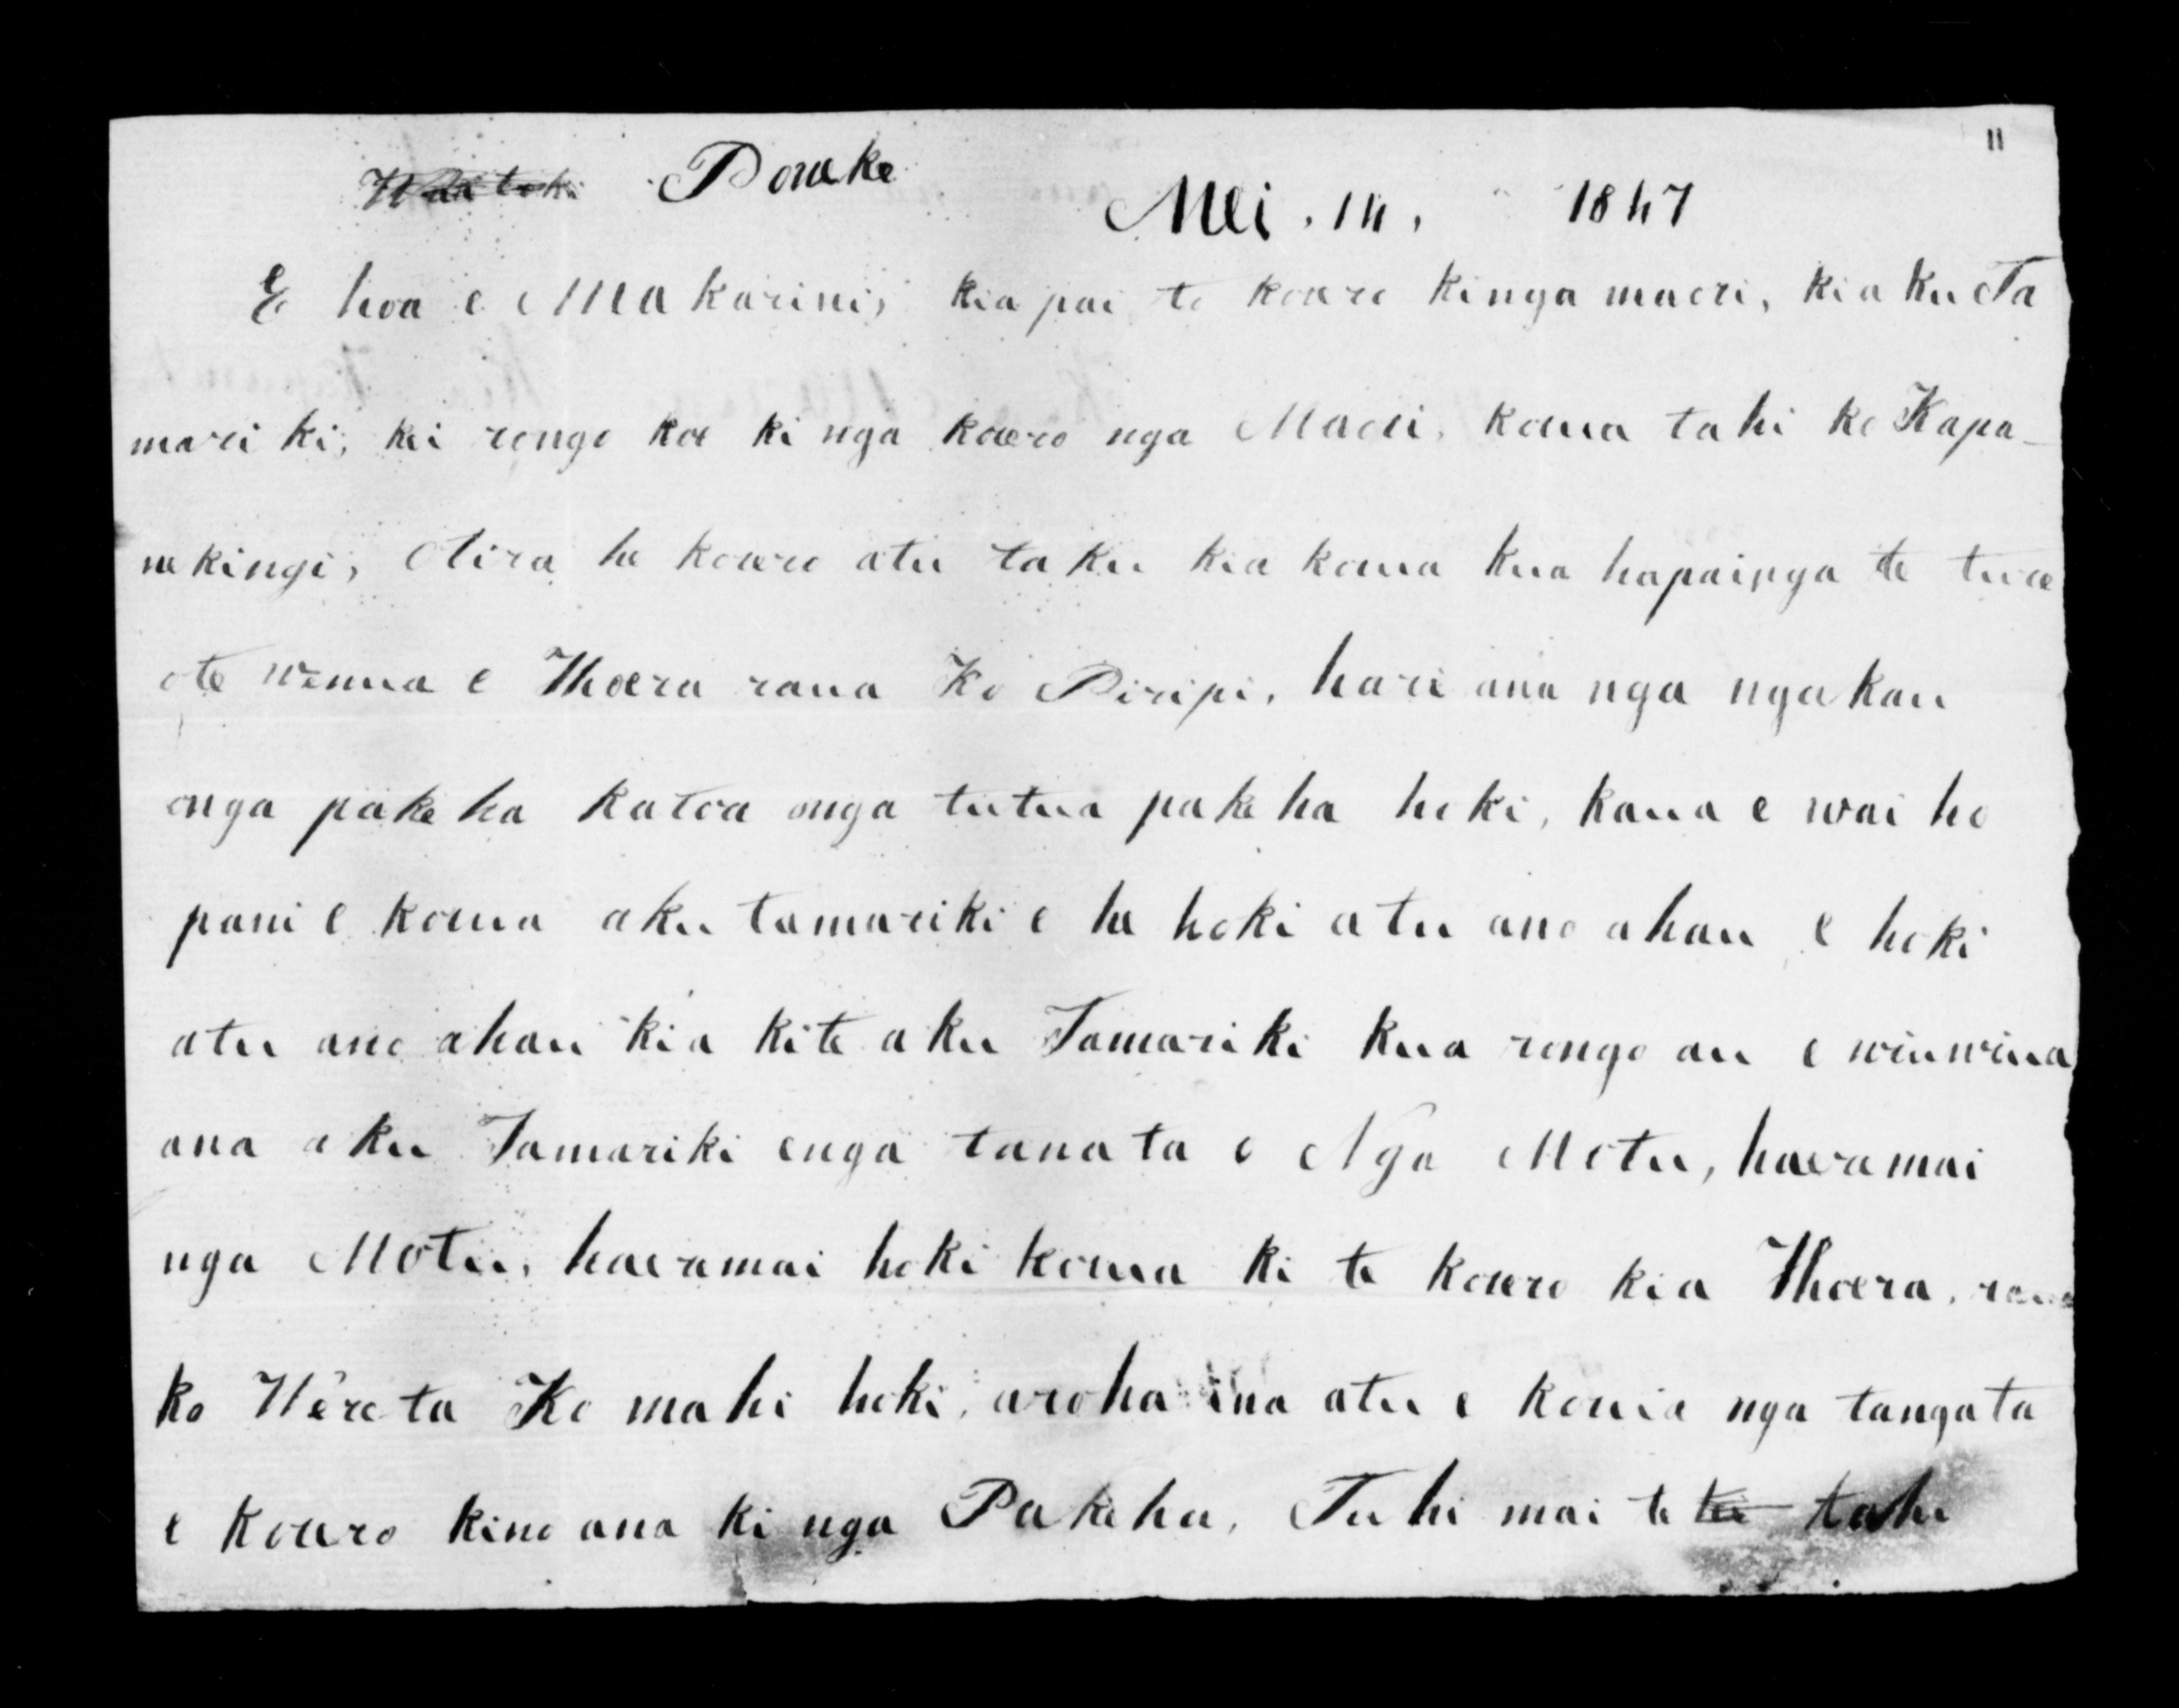 11
Pouake
Mei. 14, 1847
E hoa e Makarini, kia pai te koero kinga maori, kia ku Ta
mariki, kei rongo koe ki nga koero nga Maori, koua tahi ko Kapa-
ne kingi, Otira he korero atu taku kia koua kua hapainga te tuae
ote wenua e Ihoera raua Ko Piripi, hari ana nga ngakau
onga pakeha katoa onga tutua pakeha hoki, kaua e waiho
pani e koua aku tamariki e he hoki atu ano ahau e hoki
atu ano ahau kia kite aku Tamariki kua rongo au e wiuwiua
ana aku Tamariki enga tanata o Nga Motu, haeramai
nga Motu, haeramai hoki koua ki te korero kia Ihoera, raua
ko Wereta Ko mahi hoki, aroha ina atu e koua nga tangata
e korero kino ana ki nga Pakeha, Tuhi mai te tahi